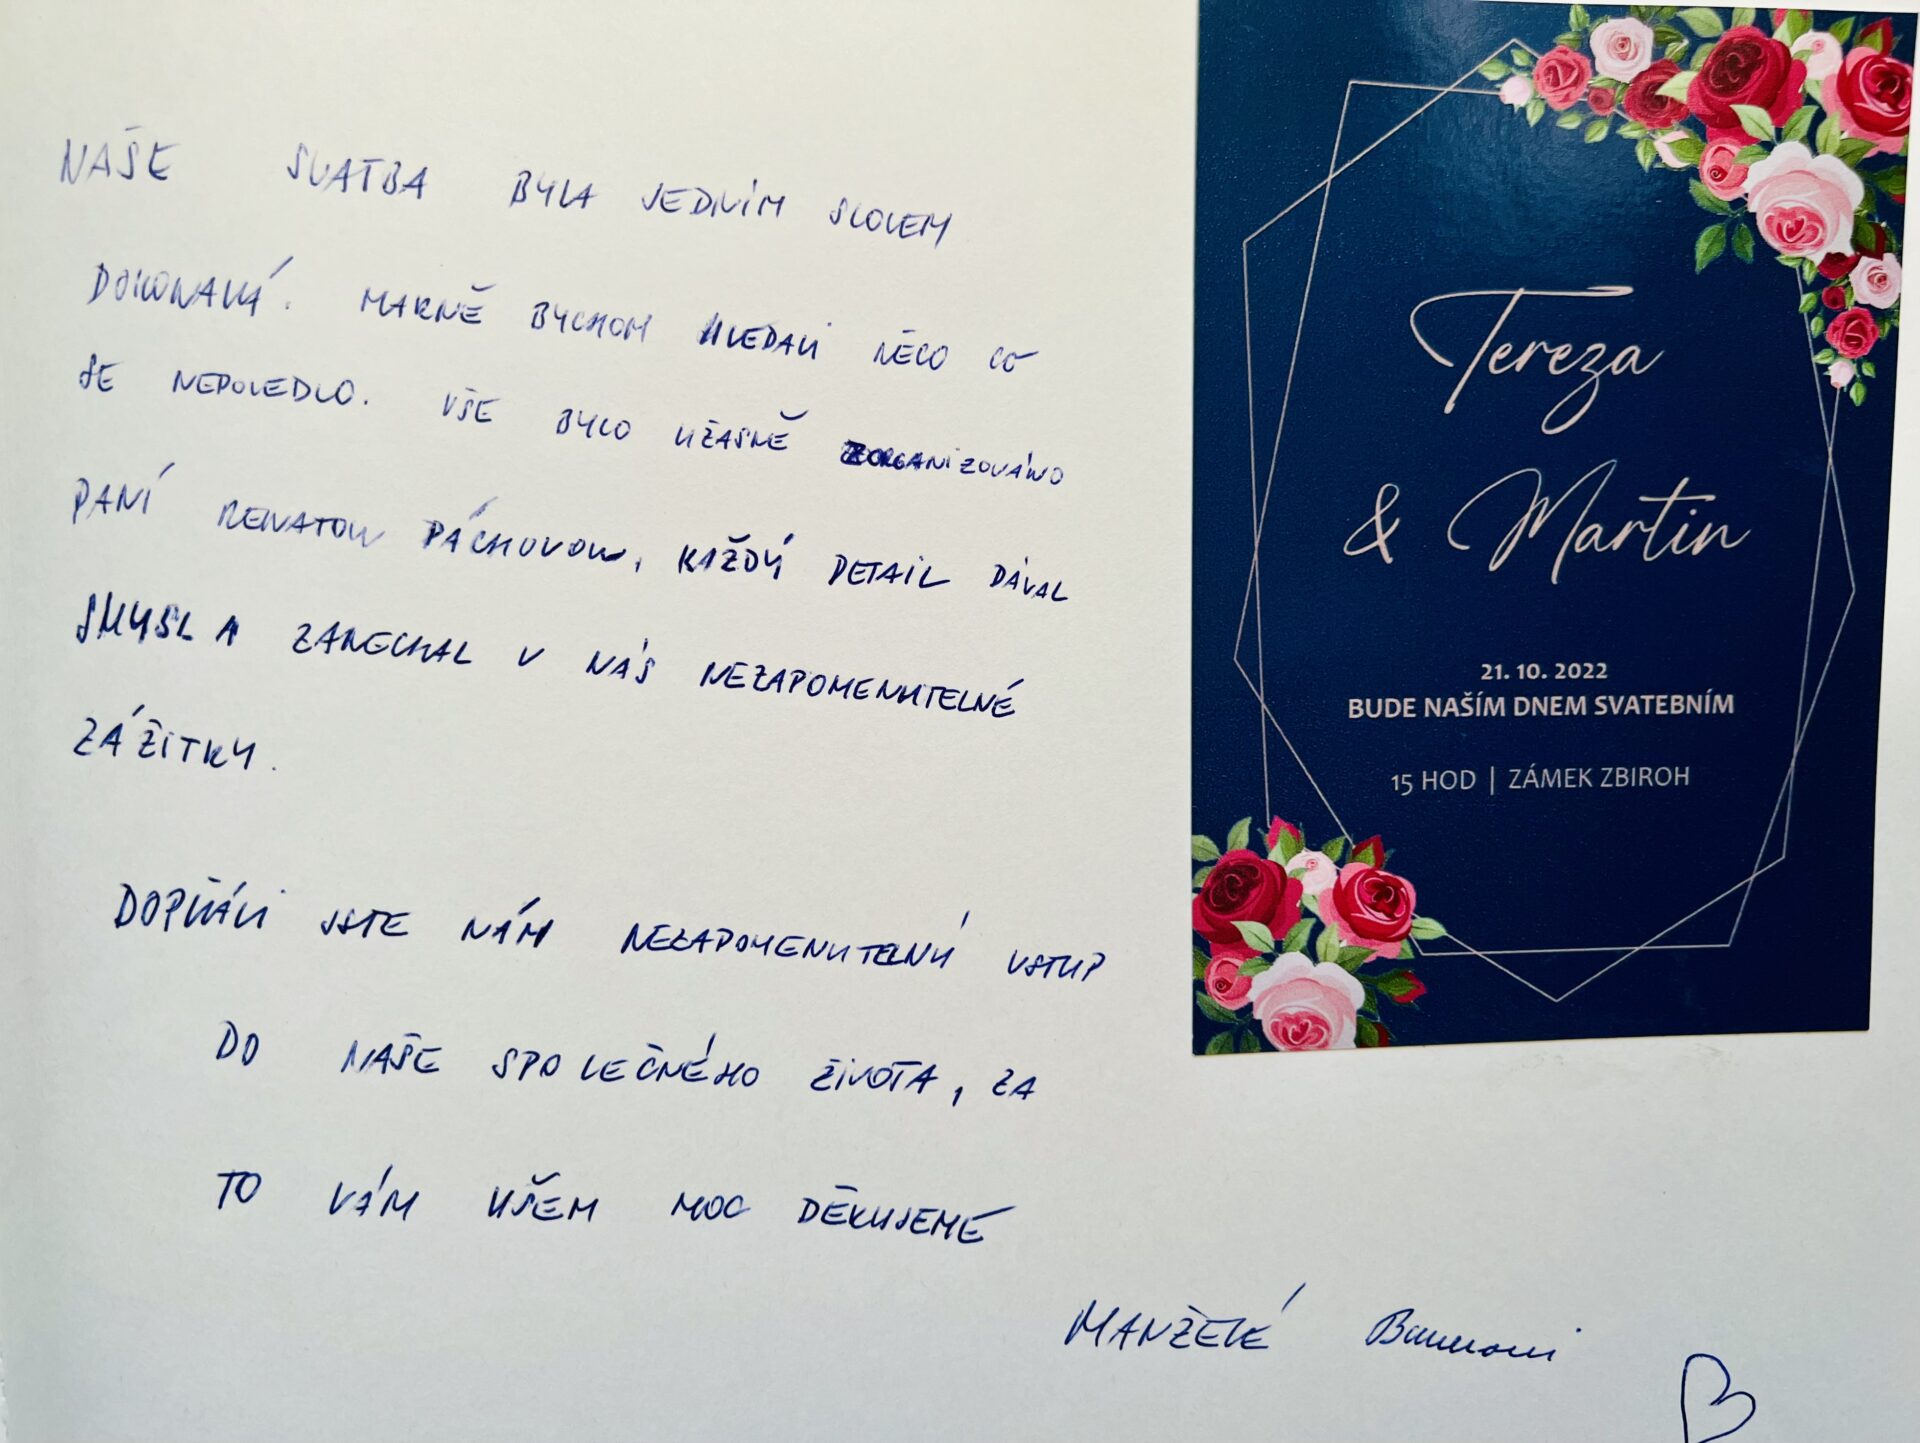 NAŠE SVATBA BYLA JEDNÍM SLOVEM
DOKONALÁ. MARNĚ BYCHOM HLEDALI NĚCO CO
SE NEPOVEDLO. VŠE BYLO ÚŽASNĚ ZORGANIZOVÁNO
PANÍ RENATOU PÁCHOVOU, KAŽDÝ DETAIL DÁVAL
SMYSL A ZANECHAL V NÁS NEZAPOMENUTELNÉ
ZÁŽITKY.
DOPŘÁLI JSTE NÁM NEZAPOMENUTELNÝ VSTUP
DO NAŠE SPOLEČNÉHO ŽIVOTA, ZA
TO VÁM VŠEM MOC DĚKUJEME
MANŽELÉ
Tereza
& Martin
21. 10. 2022
BUDE NAŠÍM DNEM SVATEBNÍM
15 HOD | ZÁMEK ZBIROH